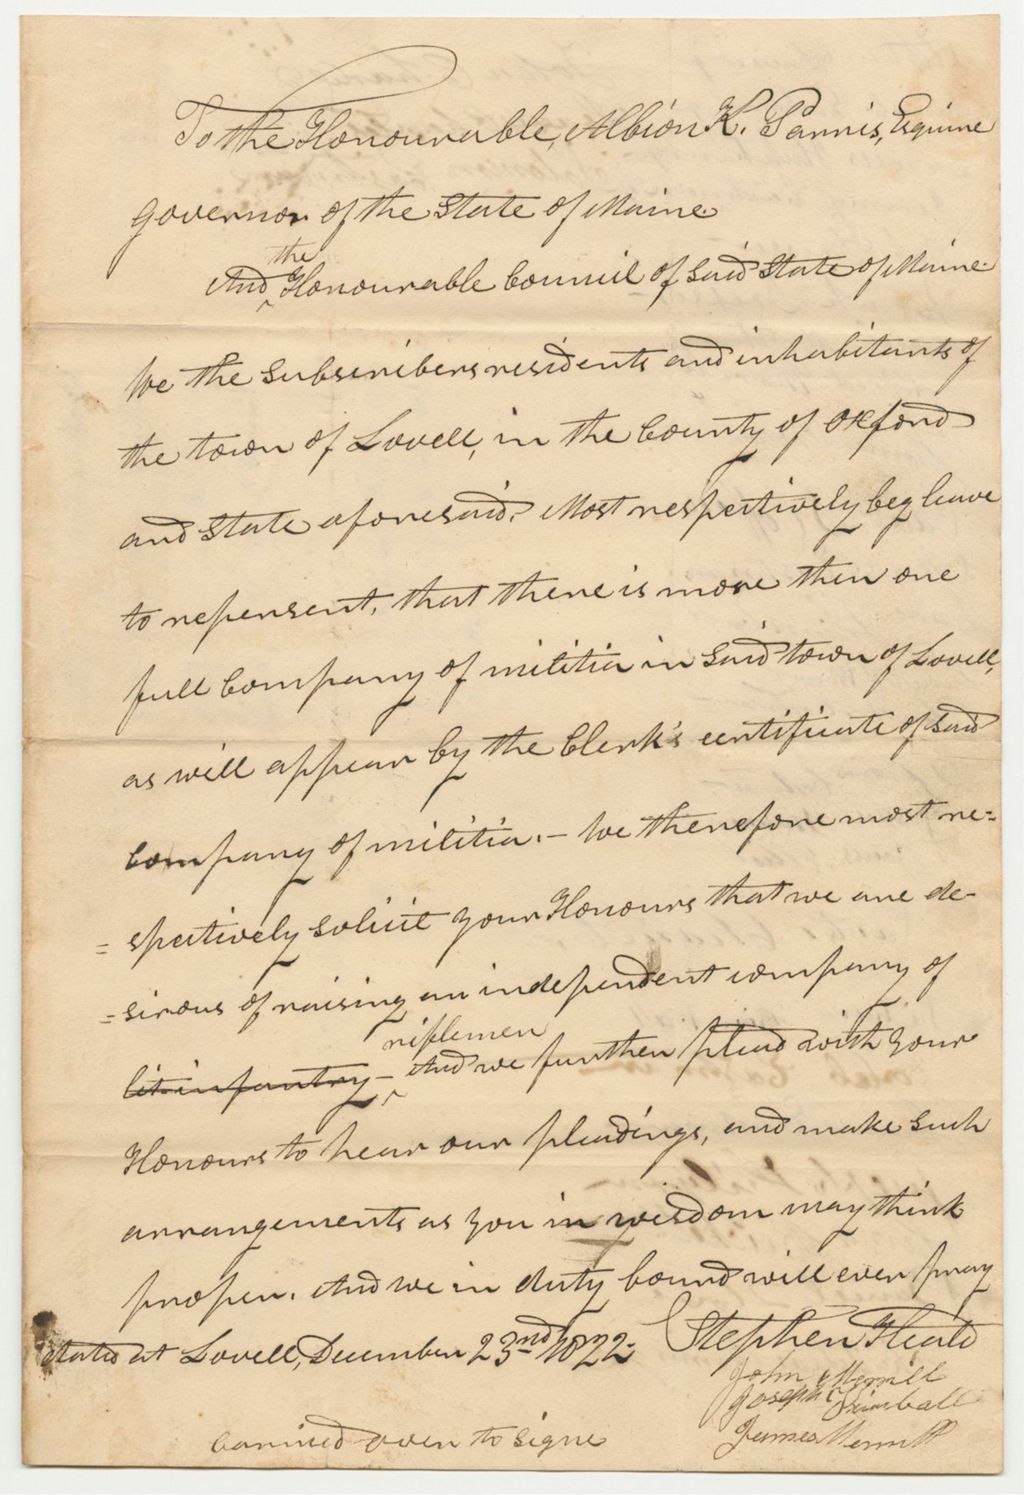 To the Honourable, Albion K. Parris, Esquire
Governor of the State of Maine
And the Honourable Council of said State of Maine
We the Subscribers residents and inhabitants of
the town of Lovell, in the County of Oxford
and State aforesaid. Most respectively beg leave
to repersent, that there is more then one
full Company of militia in said town of Lovell,
as will appear by the Clerk's certificate of said
Company of militia. – We therefore most re=
=spectively solicit your Honours that we are de-
=sirous of raising an independent company of
lit infantry – riflemen And we further plead with your
Honours to hear our pleadings, and make such
arrangements as you in wisdom may think
proper. And we in duty bound will ever pray
Dated at Lovell, December 23nd 1822 – Stephen Heald
John Merrill
Joseph Kimball
James Merrill
carried over to signe